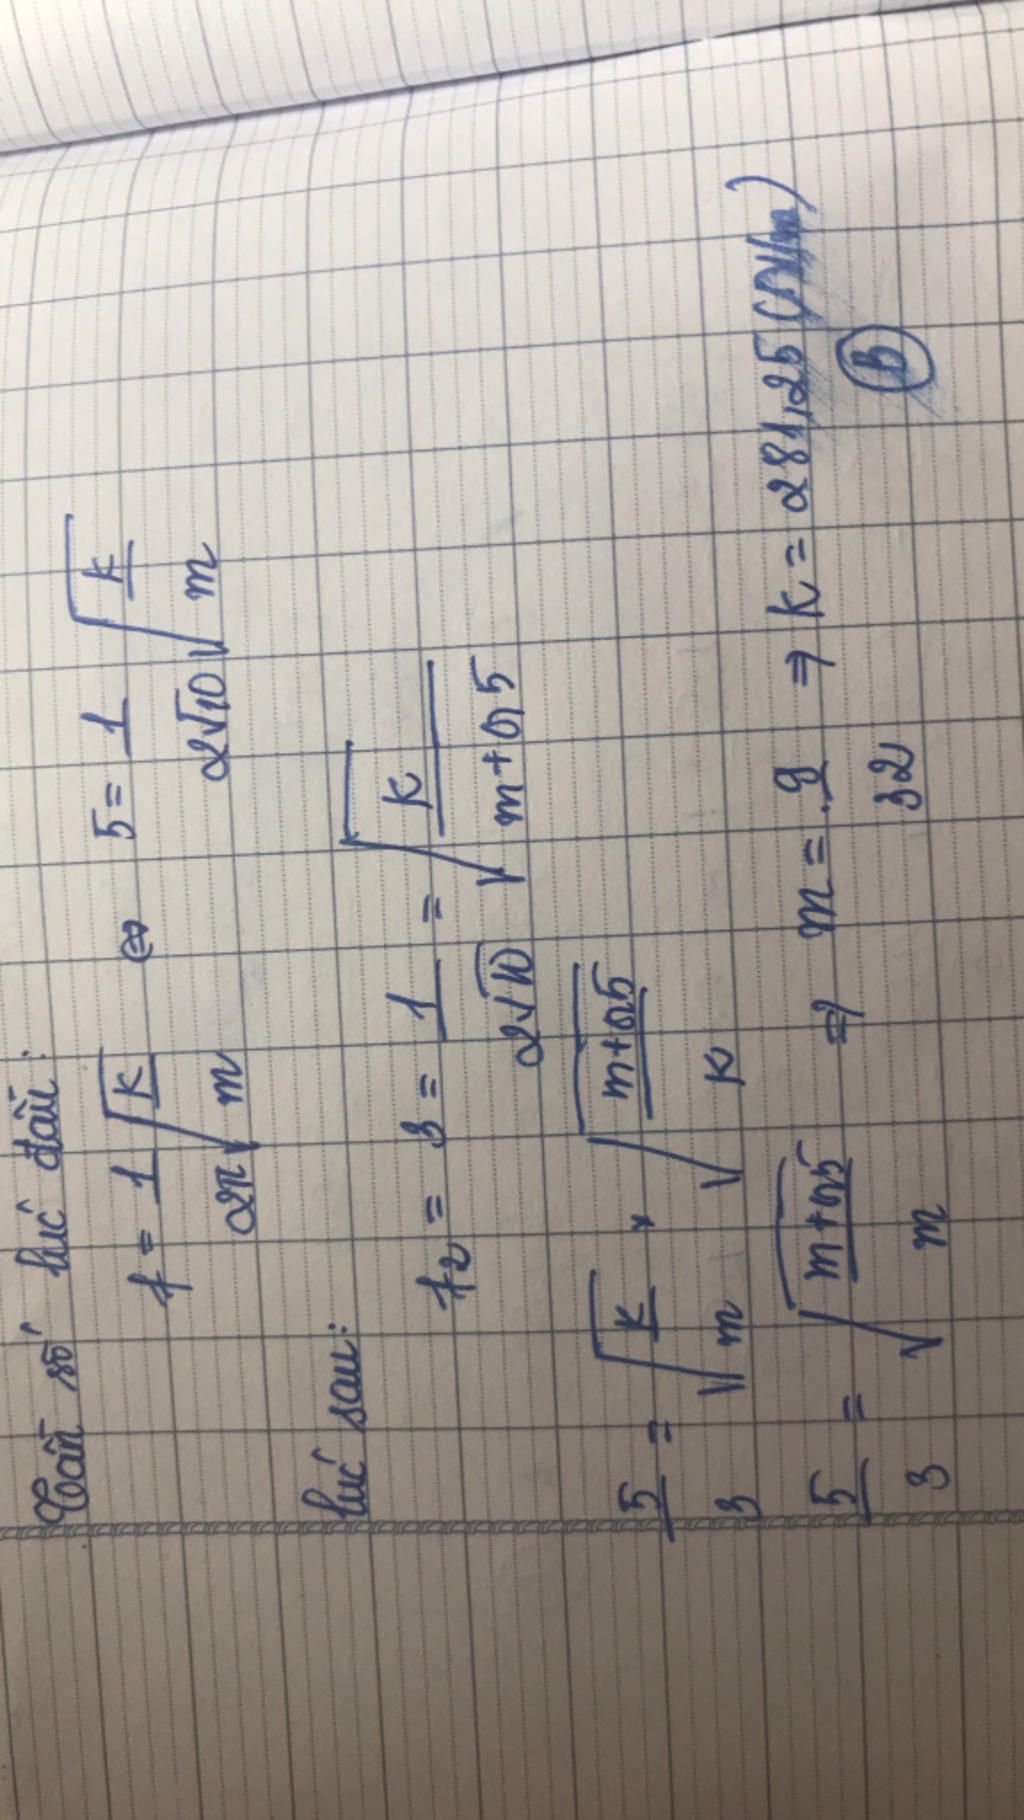 Tần số lúc đầu:
f = 1/2π √(k/m) ⇔ 5 = 1/2√10 √(k/m)
lúc sau:
f2 = 3 = 1/2√10 = √(k/m+0,5)
5/3 = √(k/m) × √(m+0,5/k)
5/3 = √(m+0,5/m) ⇒ m = 9/32 ⇒ k = 281,25 (N/m)
B